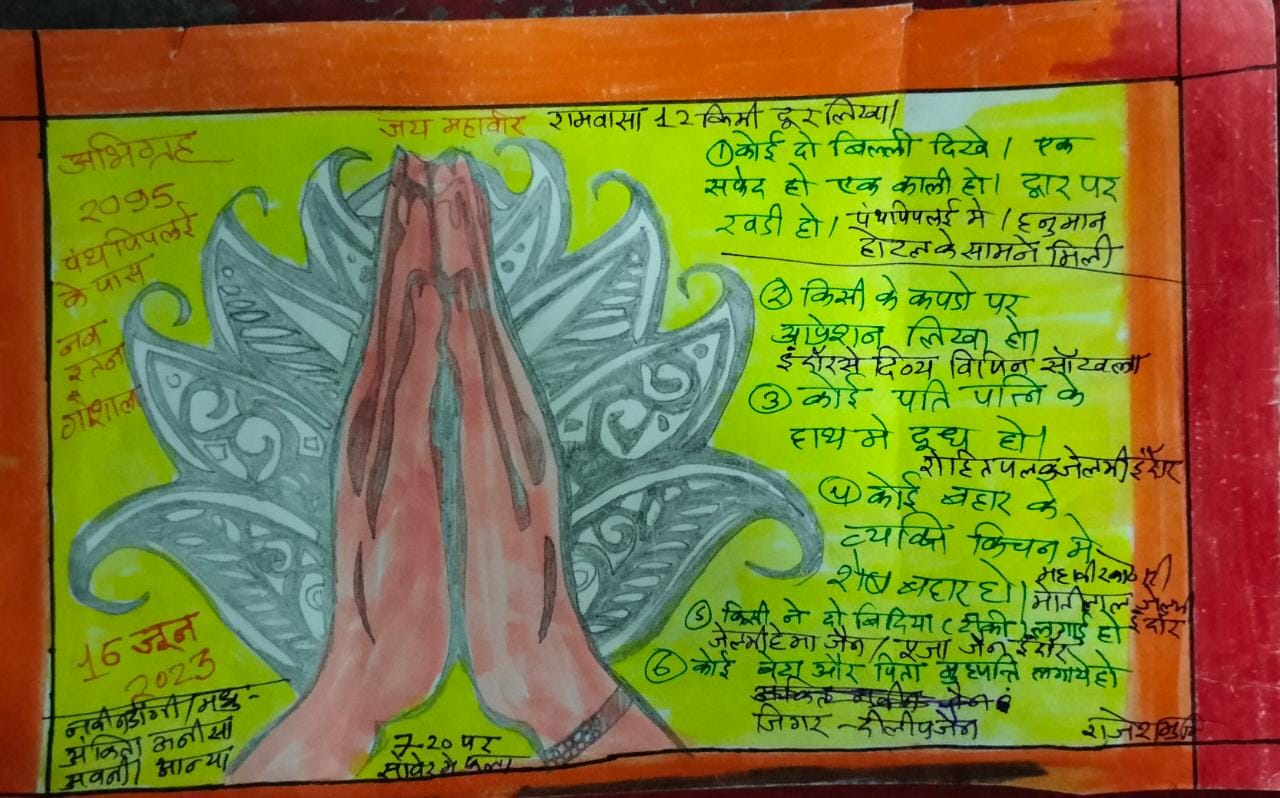 जय महावीर रामवासा 12 किमी दूर लिखा।
अभिग्रह
2095
पंथपिपलई
के पास
नव
रत्न
गोशाला
① कोई दो बिल्ली दिखे। एक
सफेद हो एक काली हो। द्वार पर
खडी हो। पंथपिपलई मे। हनुमान
होटल के सामने मिली
② किसी के कपडो पर
आप्रेशन लिखा हो।
इंदौर से दिव्य विपिन सॉखला
③ कोई पति पत्नि के
हाथ मे दूध हो।
रोहित पलक जेलमी इंदौर
④ कोई बहार के
व्यक्ति किचन मे
शेष बहार हो।
मोतीलाल
⑤ किसी ने दो बिंदिया ( ) लगाई हो इंदौर
हेमा जैन / पूजा जैन इंदौर
⑥ कोई और पिता लगाये हो
जिगर - दीलीप जैन
15 जून
2023
अंकिता अनीसा
अवनी आन्या
7-20 पर
सांवेर मे फला
राजेश